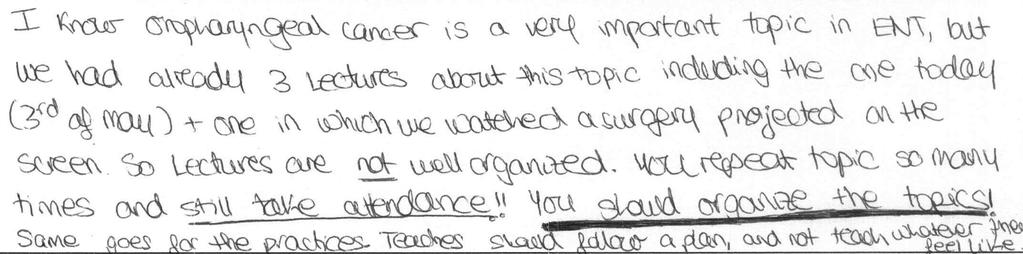 I know oropharyngeal cancer is a very important topic in ENT, but
we had already 3 Lectures about this topic including the one today
(3rd of may) + one in which we watched a surgery projected on the
screen. So Lectures are not well organized. You repeat topic so many
times and still take attendance!! You should organize the topics!
Same goes for the practices. Teaches should follow a plan, and not teach whatever they
feel like.